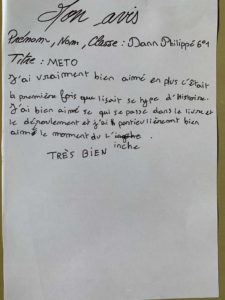 Mon avis
Prénom, Nom, Classe : Dann Philippé 6e1
Titre : METO
J'ai vraiment bien aimé en plus c'était
la première fois que lisait se type d'histoire.
J'ai bien aimé se qui se passe dans le livre et
le déroulement et j'ai particulièrement bien
aimé le moment du l'
inche
TRÈS BIEN